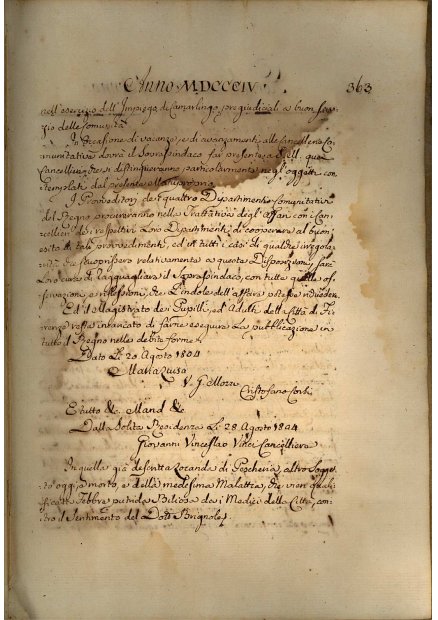 Anno MDCCCIV 363
nell'esercizio dell'Impiego di Camarlingo, pregiudiciali a buon ser-
vizio delle Comunità
In Occasione di vacanze, e di avanzamenti alle Cancellerie Co-
munitative dovrà il Soprasindaco far presente a quei
Cancellieri che si distingueranno particolarmente negl'oggetti con-
templati dal presente
I Provveditori de quattro Dipartimenti Comunitativi
del Regno procureranno nella Trattativa degl'affari con i Can-
cellieri dei respettivi Loro Dipartimenti di cooperare al buon
esito di tali provvedimenti, ed in tutti i casi di qualche irregola-
rità da relativamente a queste Disposizioni, sarà
Loro cura di ragguagliare il Soprasindaco, con tutte quelle os-
servazioni e riflessioni, che l'indole dell'affare potesse
Ed il Magistrato dei Pupilli, ed Adulti della Città di Fi-
renze resta incaricato di farne eseguire la pubblicazione in
tutto il Regno nelle debite forme
Dato Li 20 Agosto 1804
Maria Luisa
V. G. Mozzi
Cristofano
&c. Mand &c
Dalla Solita Residenza Li 28 Agosto 1804
Giovanni Vinceslao Cancelliere
In quella già descritta Locanda di Pescheria, altro Sogge-
to oggi è morto, e della medesima Malattia, che vien quali-
ficata Febbre putrida Biliosa dai Medici della Città, con-
tro il Sentimento del Dott. Brignole.